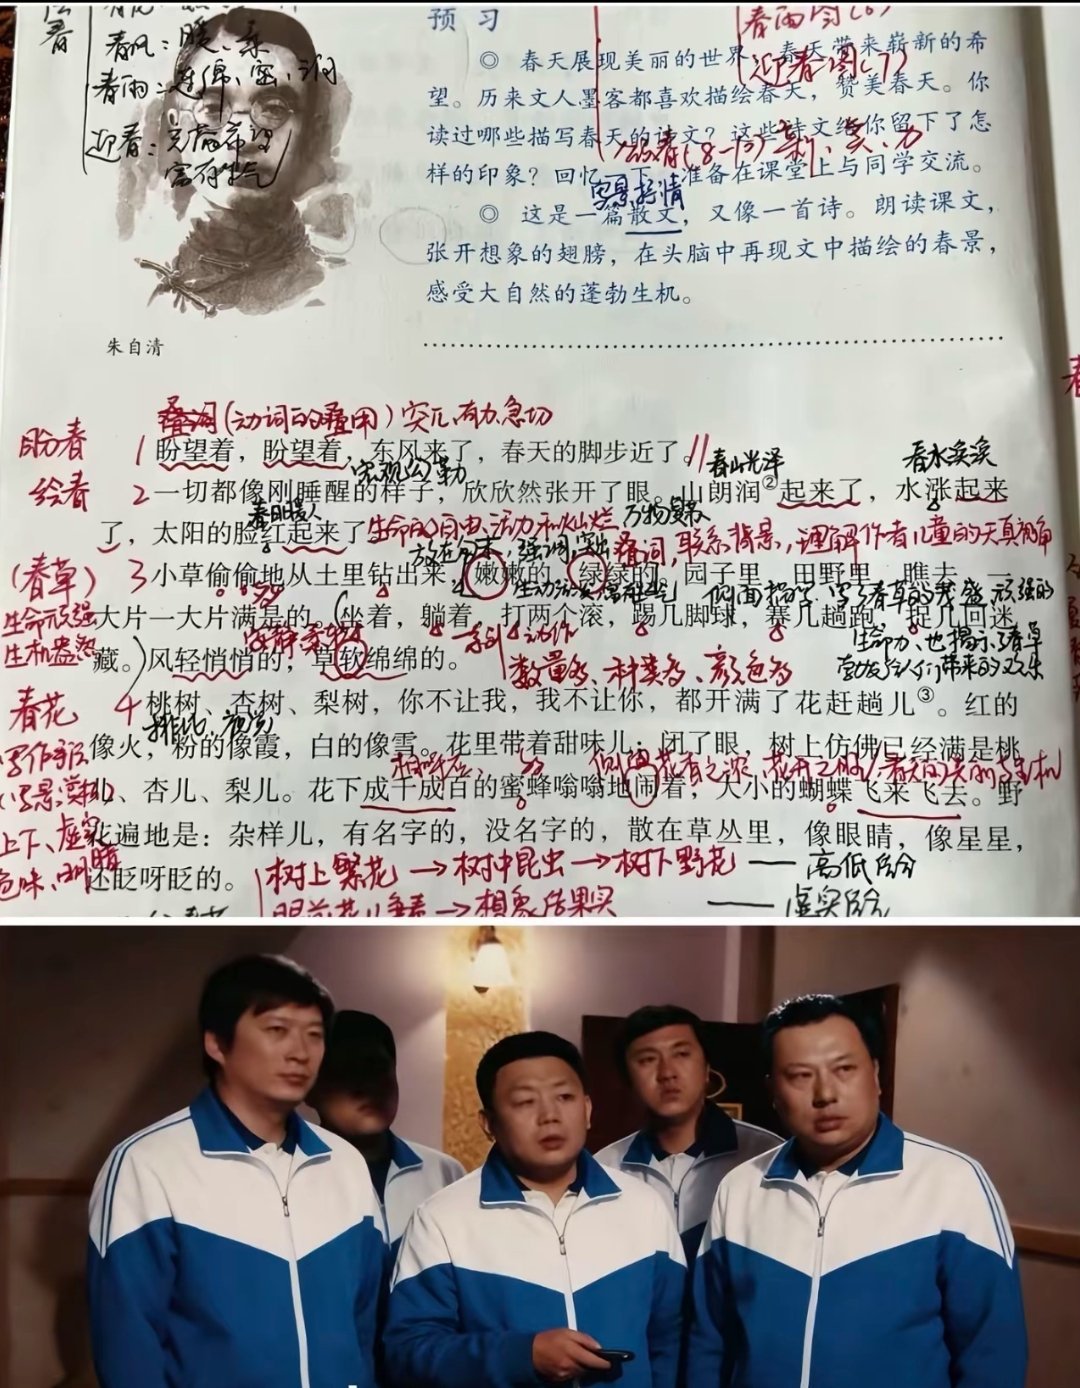 春风：暖、柔
春雨：连绵、密、润
迎春：充满希望
富有生气
朱自清
预习
春雨图(6)
迎春图(7)
◎ 春天展现美丽的世界，春天带来崭新的希
望。历来文人墨客都喜欢描绘春天，赞美春天。你
读过哪些描写春天的诗文？这些诗文给你留下了怎
颂春(8-10) 新、美、力
样的印象？回忆一下，准备在课堂上与同学交流。
写景抒情
◎ 这是一篇散文，又像一首诗。朗读课文，
张开想象的翅膀，在头脑中再现文中描绘的春景，
感受大自然的蓬勃生机。
叠词(动词的叠用) 突兀有力急切
盼春
1 盼望着，盼望着，东风来了，春天的脚步近了。
宏观勾勒
春山光泽
春水涣涣
绘春
2 一切都像刚睡醒的样子，欣欣然张开了眼。山朗润②起来了，水涨起来
春日暖人
万物复苏
了，太阳的脸红起来了。
生命的自由、活力和灿烂
叠词，联系背景，理解作者儿童的天真视角
(春草)
3 小草偷偷地从土里钻出来，嫩嫩的，绿绿的。园子里，田野里，瞧去，一
生命顽强
生机盎然
大片一大片满是的。坐着，躺着，打两个滚，踢几脚球，赛几趟跑，捉几回迷
生命力、也揭示了春草
藏。风轻悄悄的，草软绵绵的。
数量多、种类多、颜色多
给人们带来的欢乐
春花
4 桃树、杏树、梨树，你不让我，我不让你，都开满了花赶趟儿③。红的
像火，粉的像霞，白的像雪。花里带着甜味儿；闭了眼，树上仿佛已经满是桃
儿、杏儿、梨儿。花下成千成百的蜜蜂嗡嗡地闹着，大小的蝴蝶飞来飞去。野
上下、虚实
花遍地是：杂样儿，有名字的，没名字的，散在草丛里，像眼睛，像星星，
还眨呀眨的。
树上繁花→树中昆虫→树下野花——高低结合
眼前花儿争春→想象结果实——虚实结合